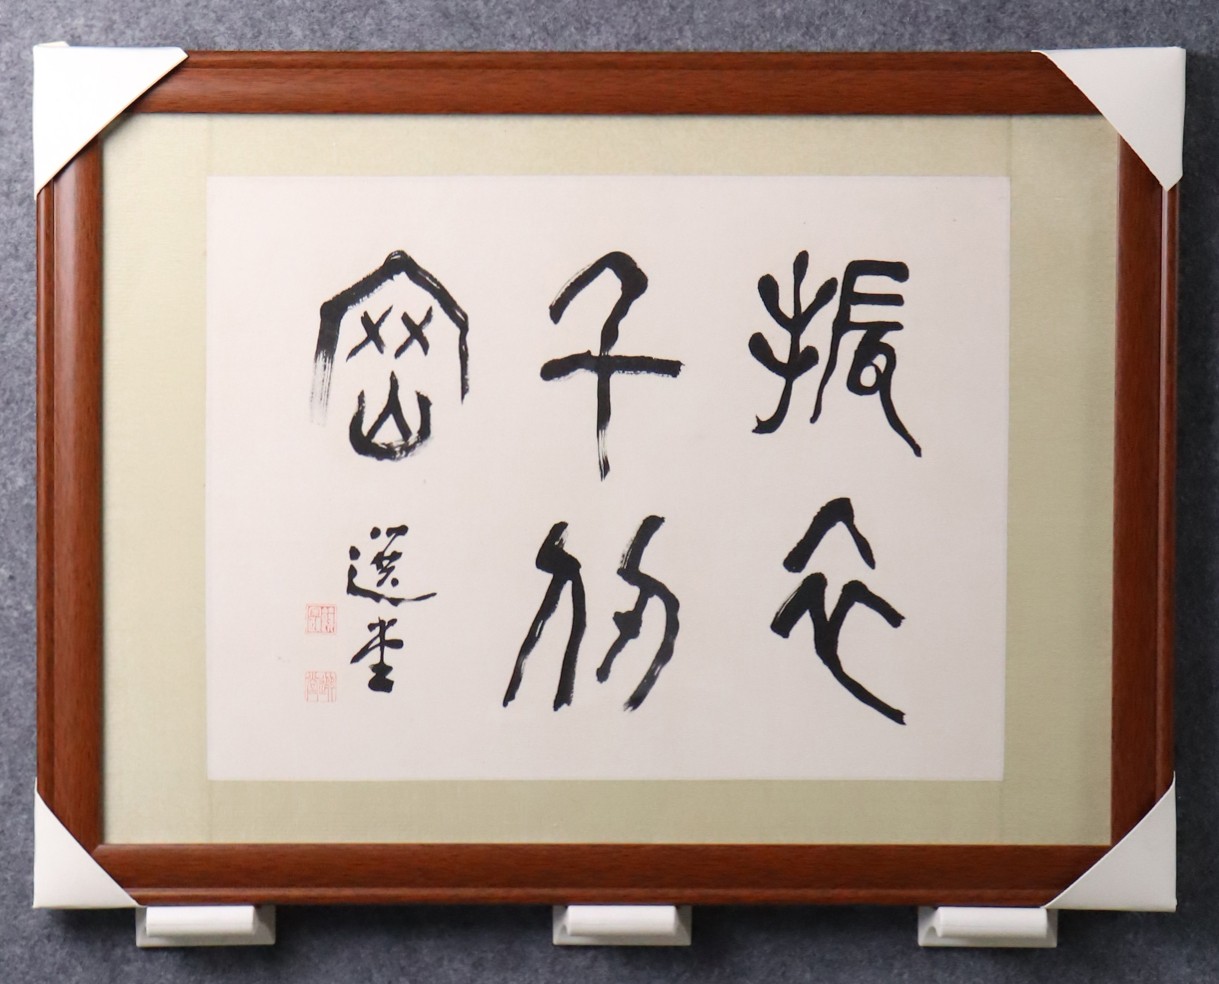 振衣
千仞
岡
選堂